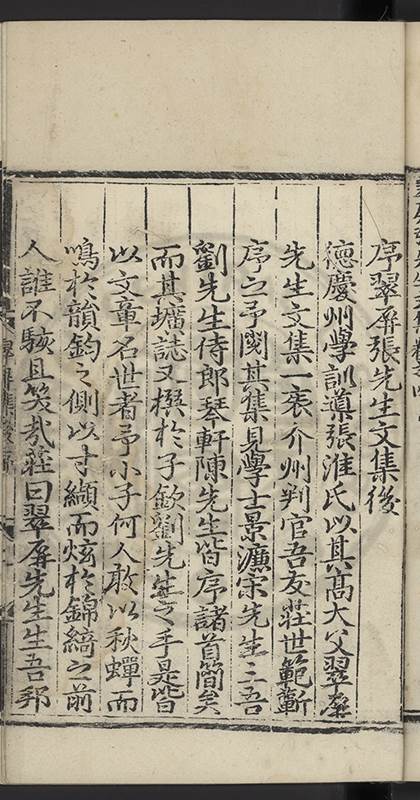 序翠屏張先生文集後
德慶州學訓導張淮氏以其高大父翠屏
先生文集一袠介州判官吾友莊世範蘄
序之予閱其集見學士景濂宋先生三吾
劉先生侍郎琴軒陳先生皆序諸首簡矣
而其壙誌又撰於子欽劉先生之手是皆
以文章名世者予小子何人敢以秋蟬而
鳴於韻鈞之側以寸纈而炫於錦綺之前
人誰不駭且笑哉莊曰翠屏先生生吾邦